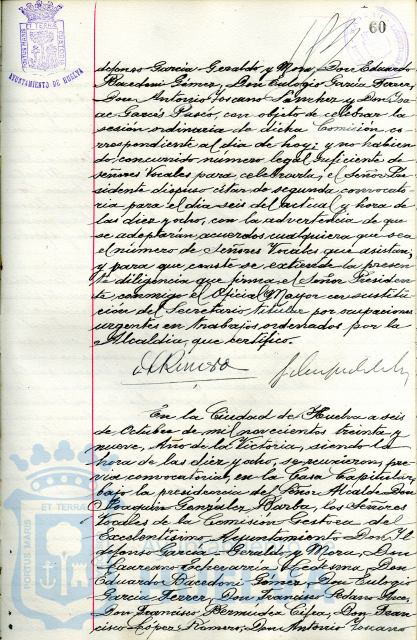 60
AYUNTAMIENTO DE HUELVA
defonso García Geraldo y Mora, Don Eduardo
Dacedoni Gómez, Don Eulogio García Ferrer,
Don Antonio Toscano Sánchez y Don Isa-
ac Garcés con objeto de celebrar la
sesión ordinaria de dicha Comisión co-
rrespondiente al día de hoy; y no habien-
do concurrido número legal suficiente de
señores Vocales para celebrarla, el Señor Pre-
sidente dispuso citar de segunda convocato-
ria para el día seis del actual y hora de
las diez y ocho, con la advertencia de que
se adoptarán acuerdos cualquiera que sea
el número de Señores Vocales que asistan;
y para que conste se extiende la presen-
te diligencia que firma el Señor Presiden-
te conmigo el Oficial Mayor en sustitu-
ción del Secretario titular por ocupaciones
urgentes en trabajos ordenados por la
Alcaldía, que certifico.
En la Ciudad de Huelva a seis
de Octubre de mil novecientos treinta y
nueve, Año de la Victoria, siendo la
hora de las diez y ocho, se reunieron, pre-
via convocatoria, en la Casa Capitular,
bajo la presidencia del Señor Alcalde Don
Joaquín González Barba, los Señores
Vocales de la Comisión Gestora del
Excelentísimo Ayuntamiento Don Il-
defonso García Geraldo y Mora, Don
Laureano Echevarría Don
Eduardo Dacedoni Gómez, Don Eulogio
García Ferrer, Don Francisco
Don Francisco Bermúdez Don Fran-
cisco López Romero, Don Antonio Toscano
ET TERRA
PORTUS MARIS